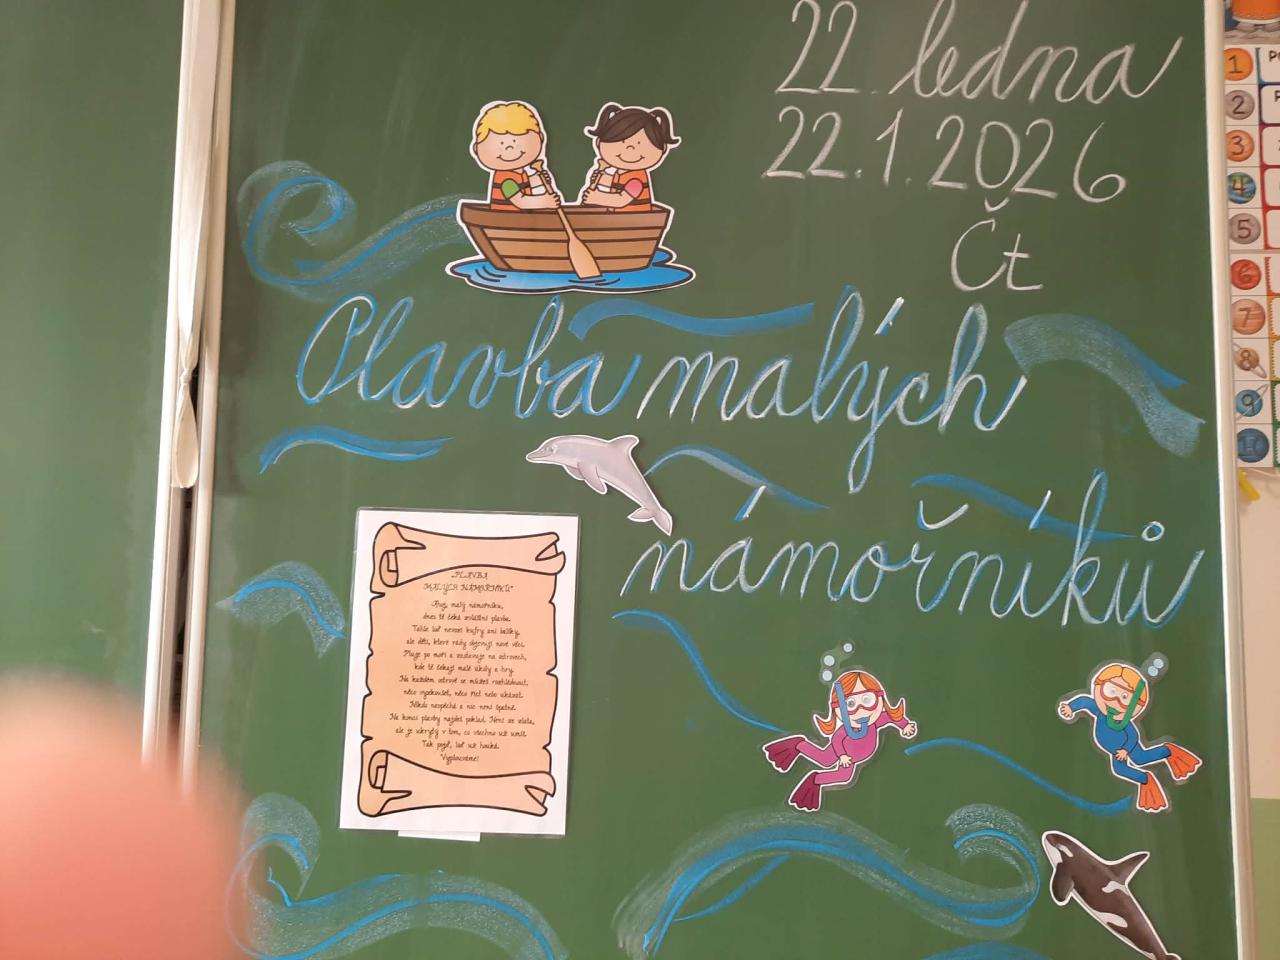 22. ledna
22.1.2026
Čt
Plavba malých
námořníků
„PLAVBA
MALÝCH NÁMOŘNÍKŮ“
Ahoj, malý námořníku,
dnes tě čeká zvláštní plavba.
Tahle loď nevozí kufry ani balíky,
ale děti, které rády objevují nové věci.
Pluje po moři a zastavuje na ostrovech,
kde tě čekají malé úkoly a hry.
Na každém ostrově se můžeš rozhlédnout,
něco vyzkoušet, něco říct nebo ukázat.
Nikdo nespěchá a nic není špatně.
Na konci plavby najdeš poklad. Není ze zlata,
ale je ukrytý v tom, co všechno už umíš.
Tak pojď, loď už houká.
Vyplouváme!
1
2
3
4
5
6
7
8
9
10